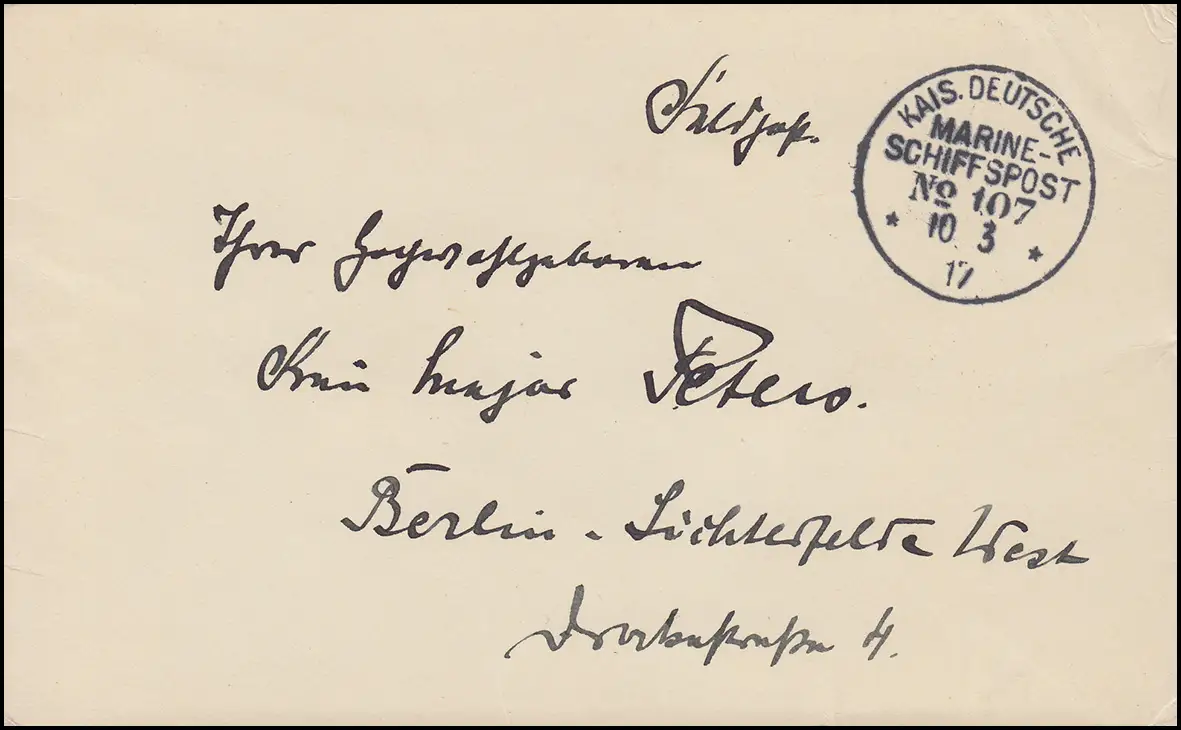 Feldpost.
KAIS. DEUTSCHE
MARINE-
SCHIFFSPOST
No 107
* 10 3 *
17
Ihrer Hochwohlgeboren
Frau Major Peters.
Berlin - Lichterfelde West
Drakestraße 4.